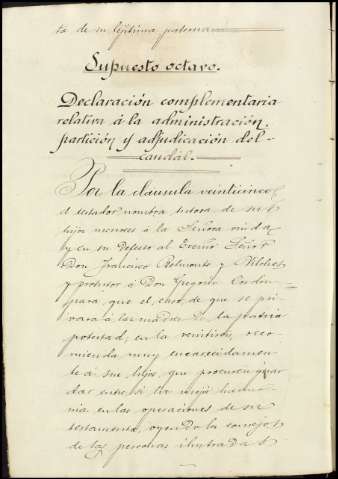 ta de su legítima paterna
Supuesto octavo.
Declaración complementaria
relativa á la administración,
partición y adjudicación del
caudal.
Por la cláusula veinticinco
el testador nombra tutora de sus
hijos menores á la Señora viuda
y en su defecto al Excmo Señor
Don Francisco y
y protutor á Don Gregorio
para que el caso de que se pri-
vara á las madres de la patria
potestad, en la veintiseis, reco-
mienda muy encarecidamen-
te á sus hijos, que procuren guar
dar entre sí la mejor harmo-
nia en las operaciones de su
testamento, oyendo los consejos
de las personas ilustradas